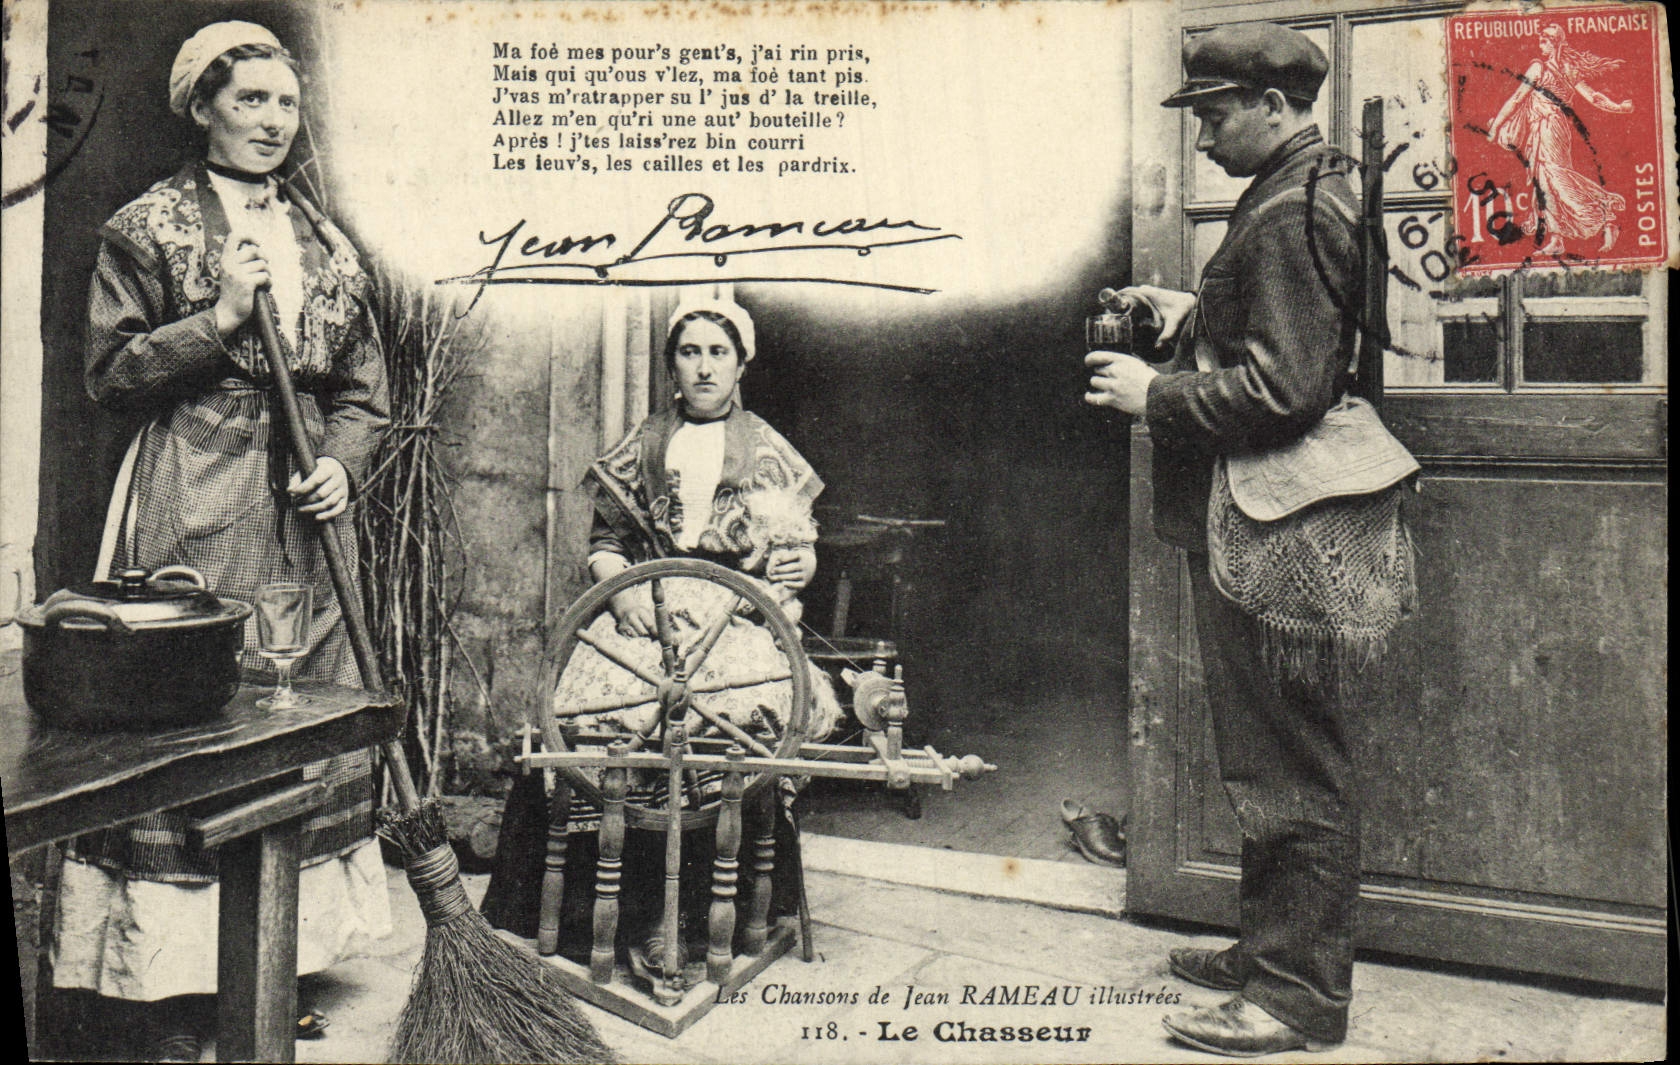 Ma foè mes pour's gent's, j'ai rin pris,
Mais qui qu'ous v'lez, ma foè tant pis.
J'vas m'ratrapper su l' jus d' la treille,
Allez m'en qu'ri une aut' bouteille ?
Après ! j'tes laiss'rez bin courri
Les ieuv's, les cailles et les pardrix.
Jean Rameau
RÉPUBLIQUE FRANÇAISE
10 c
POSTES
Les Chansons de Jean RAMEAU illustrées
118. - Le Chasseur